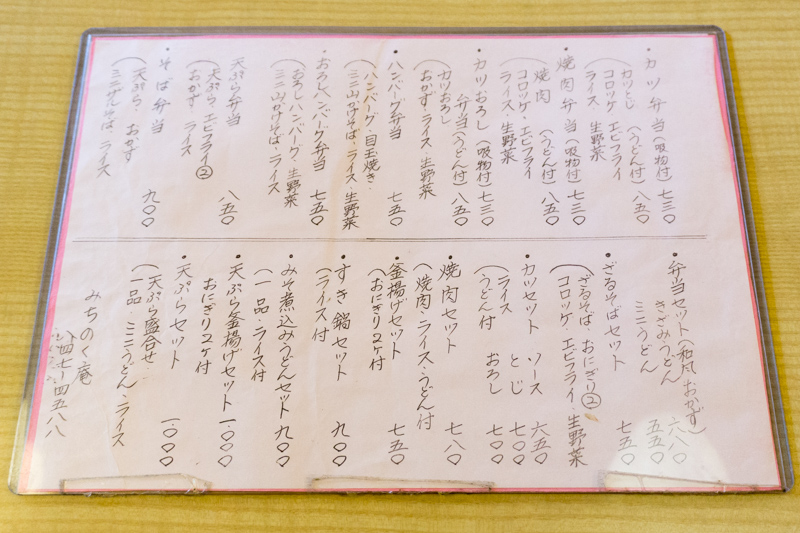 ・カツ弁当(吸物付)七三〇
カツとじ(うどん付)八五〇
(コロッケ・エビフライ
ライス 生野菜
・焼肉弁当(吸物付)七三〇
焼肉(うどん付)八五〇
(コロッケ・エビフライ
ライス・生野菜
・カツおろし(吸物付)七三〇
弁当(うどん付)八五〇
(カツおろし
おかず・ライス 生野菜
・ハンバーグ弁当 七五〇
(ハンバーグ・目玉焼き・
ミニ山かけそば・ライス・生野菜
・おろしハンバーグ弁当 七五〇
(おろしハンバーグ・生野菜
ミニ山かけそば・ライス
天ぷら弁当 八五〇
(天ぷら・エビフライ②
おかず ライス
・そば弁当 九〇〇
(天ぷら・おかず
ミニざるそば、ライス
・弁当セット(和風・おかず)
きざみうどん 六八〇
ミニうどん 五五〇
・ざるそばセット 七五〇
(ざるそば・おにぎり②
コロッケ・エビフライ・生野菜
・カツセット ソース 六五〇
(ライス とじ 七〇〇
うどん付 おろし 七〇〇
・焼肉セット 七八〇
(焼肉・ライス・うどん付
・釜揚げセット 七五〇
(おにぎり2ヶ付
・すき鍋セット 九〇〇
(ライス付
・みそ煮込みうどんセット 九〇〇
(一品・ライス付
・天ぷら釜揚げセット 一、〇〇〇
おにぎり2ヶ付
・天ぷらセット 一、〇〇〇
(天ぷら盛合せ・
一品・ミニうどん・ライス
みちのく庵
八四七-四五八八